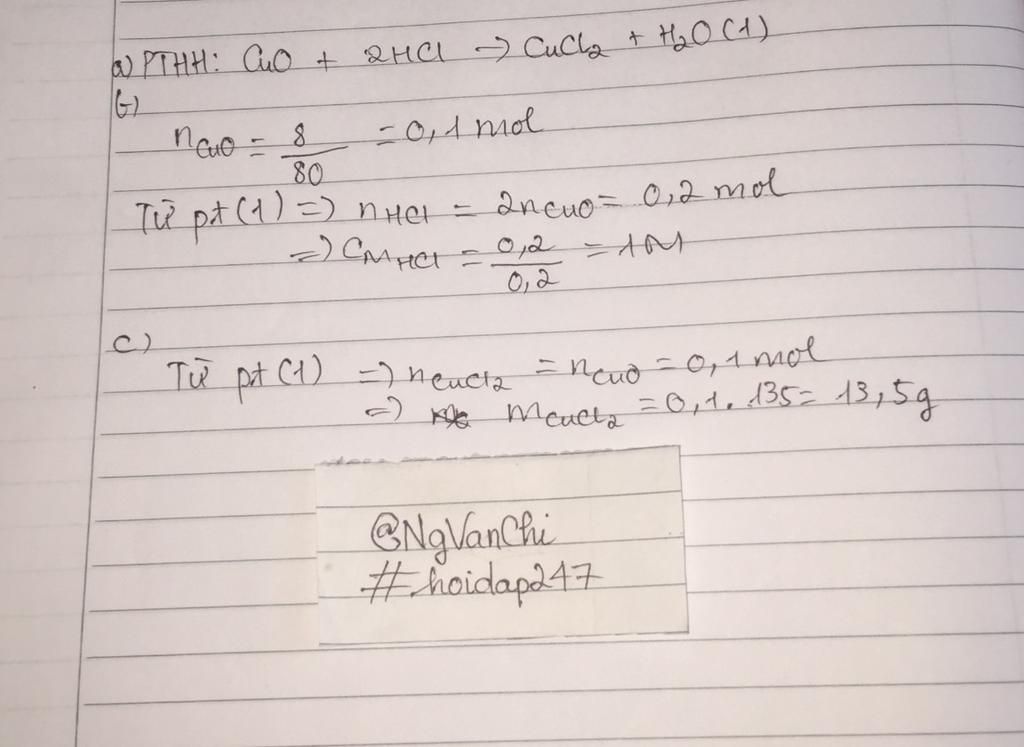 a) PTHH: CuO + 2HCl → CuCl2 + H2O (1)
b)
nCuO = 8/80 = 0,1 mol
Từ pt (1) => nHCl = 2nCuO = 0,2 mol
=> CM HCl = 0,2/0,2 = 1M
c)
Từ pt (1) => nCuCl2 = nCuO = 0,1 mol
=> mCuCl2 = 0,1 . 135 = 13,5g
@NgVanChi
#hoidap247